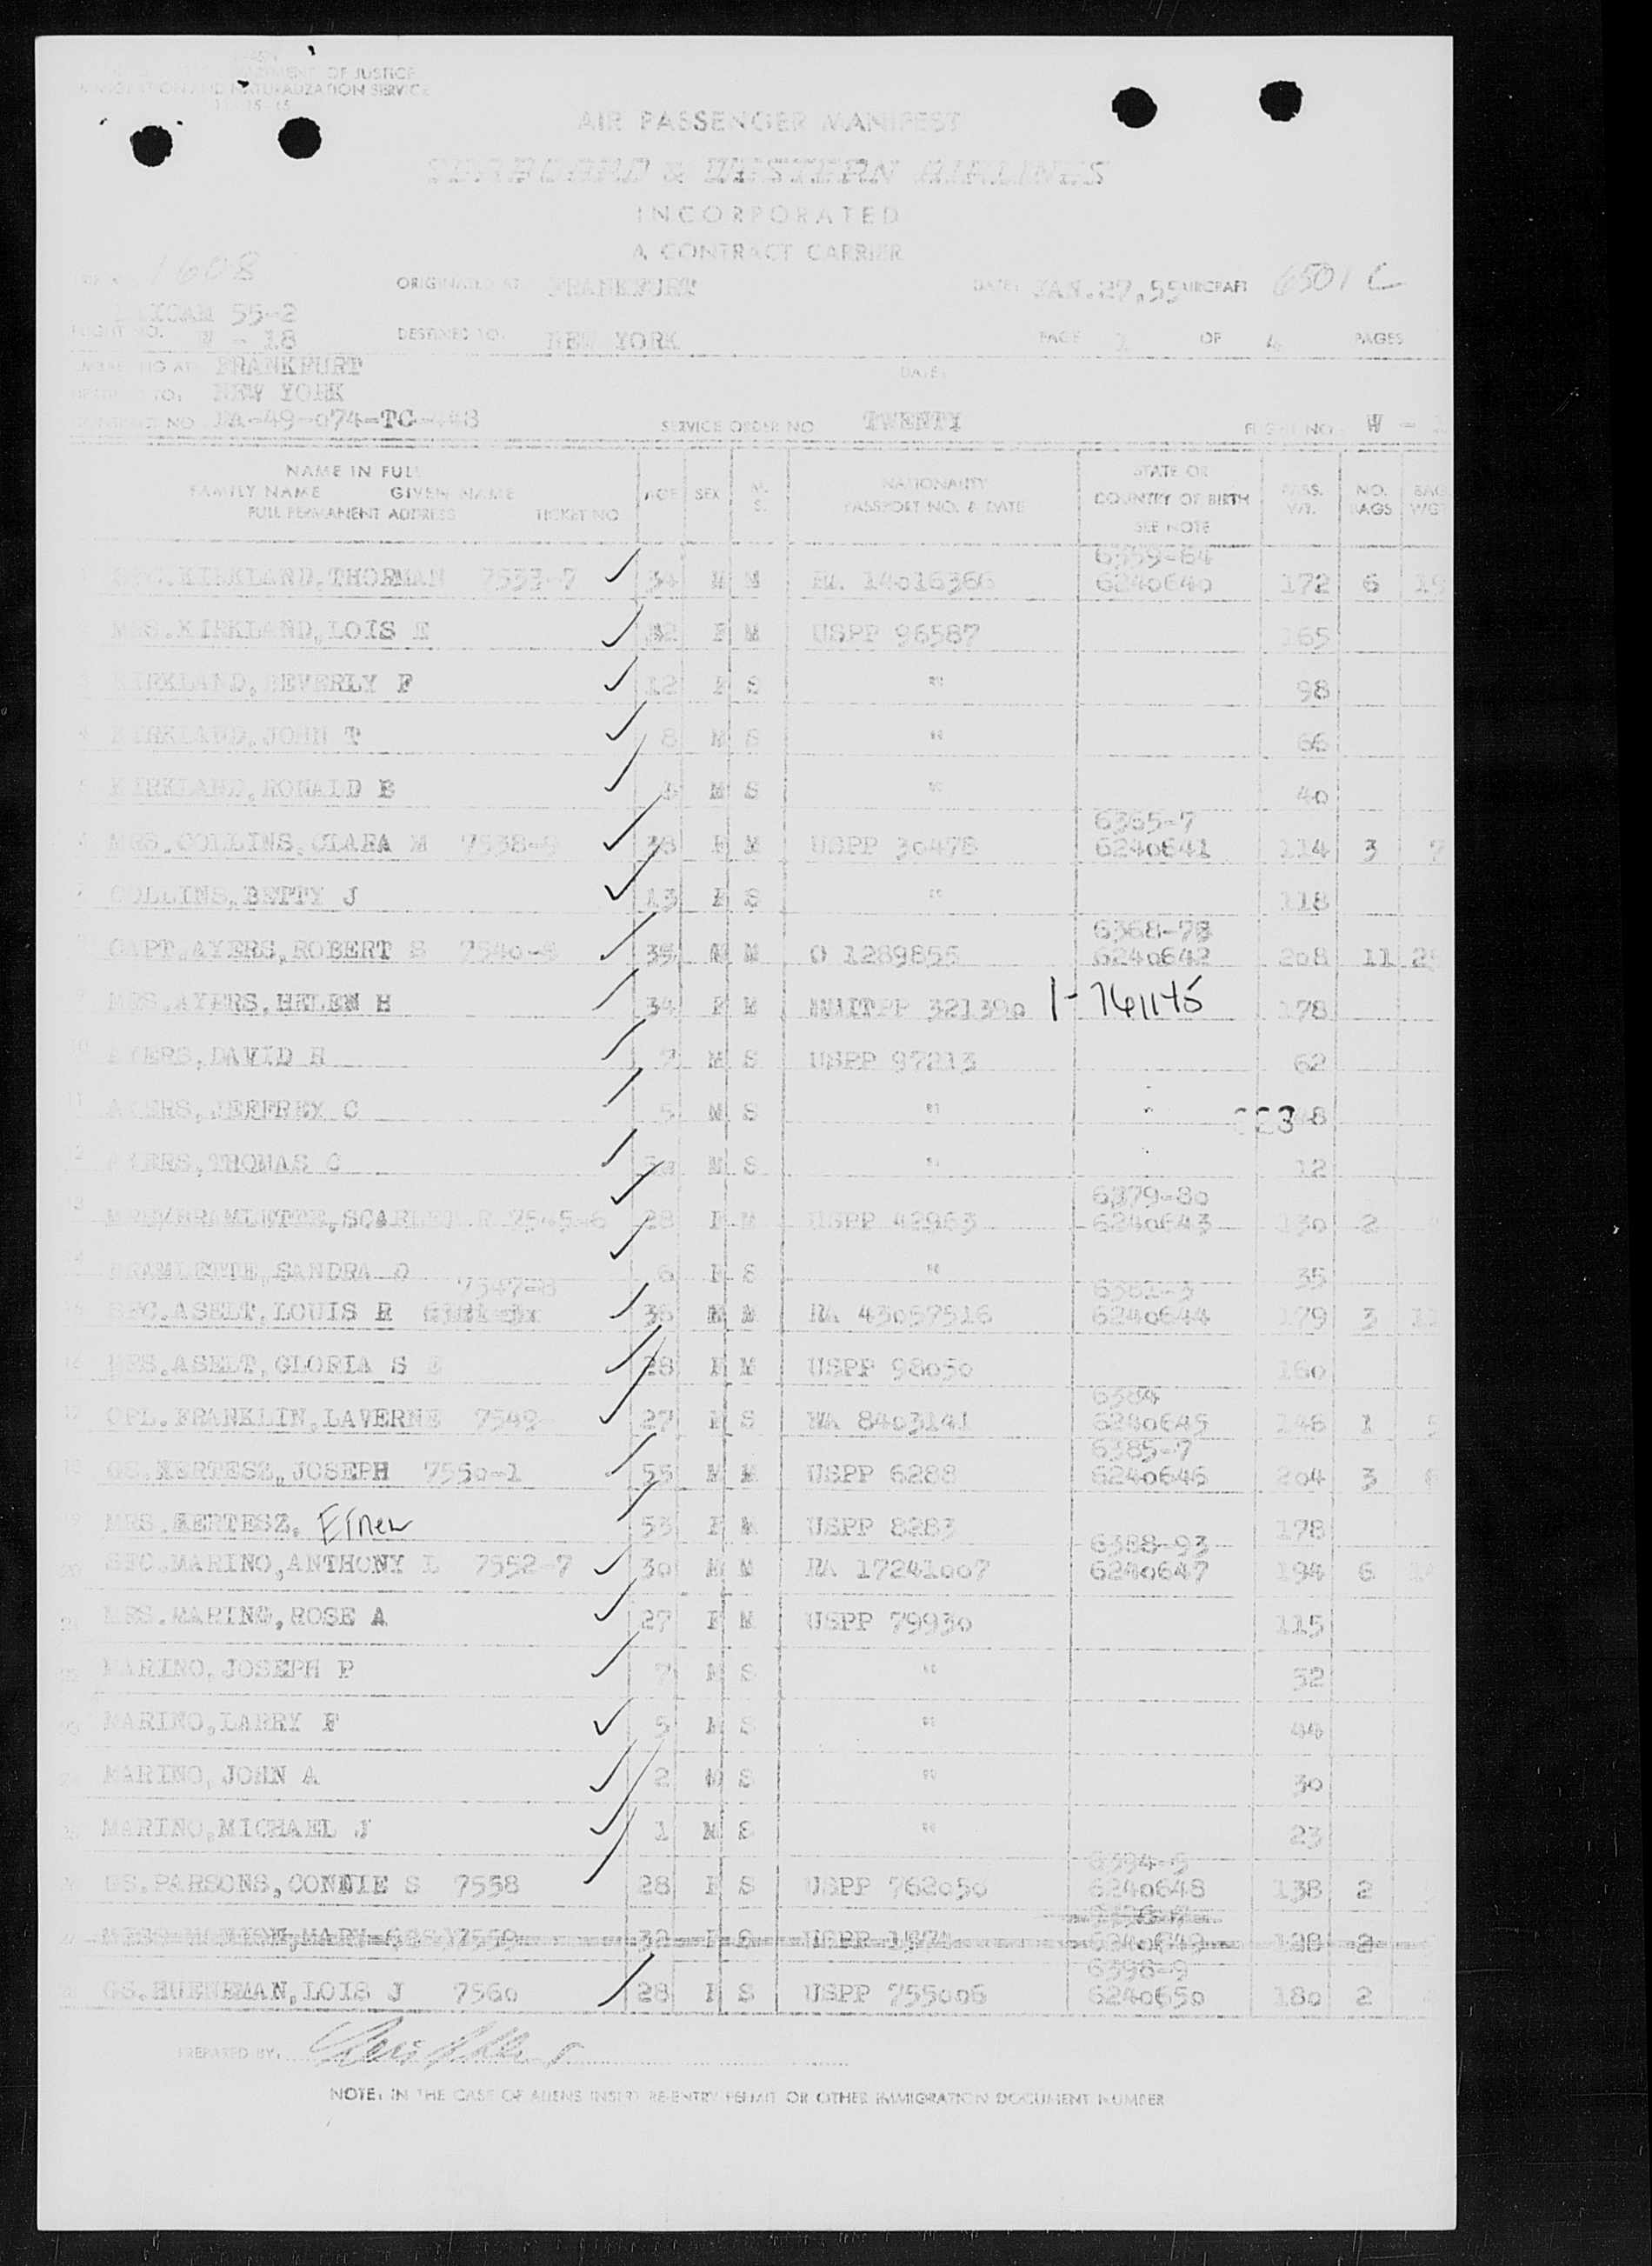 OF JUSTICE
IMMIGRATION AND NATURALIZATION SERVICE
AIR PASSENGER MANIFEST
SEABOARD & WESTERN AIRLINES
INCORPORATED
A CONTRACT CARRIER
1608
ORIGINATED AT FRANKFURT DATE: JAN.27,55 AIRCRAFT 6501 C
55-2
FLIGHT NO. W - 18 DESTINED TO: NEW YORK PAGE 1 OF 4 PAGES
FRANKFURT DATE:
TO: NEW YORK
CONTRACT NO DA-49-074-TC-448 SERVICE ORDER NO TWENTY FLIGHT NO W -
NAME IN FULL STATE OR
FAMILY NAME GIVEN NAME AGE SEX M. S. NATIONALITY COUNTRY OF BIRTH PASS. WT. NO. BAGS BAG WGT
FULL PERMANENT ADDRESS TICKET NO PASSPORT NO. & DATE SEE NOTE
6359-64
SFC.KIRKLAND,THORMAN 7533-7 34 M M RA 14016366 6240640 172 6
2 MRS.KIRKLAND,LOIS T 32 F M USPP 96587 165
3 KIRKLAND,BEVERLY F 12 F S " 98
4 KIRKLAND,JOHN T 8 M S " 66
5 KIRKLAND,RONALD B 3 M S " 40
6365-7
6 MRS.COLLINS,CLARA M 7538-9 38 F M USPP 30478 6240641 114 3
7 COLLINS,BETTY J 13 F S " 118
6368-78
CAPT.AYERS,ROBERT S 7540-4 35 M M O 1289855 6240642 208 11
9 MRS.AYERS,HELEN H 34 F M PP 321390 1-761145 178
10 AYERS,DAVID H 7 M S USPP 97213 62
11 AYERS,JEFFREY C 5 M S " 48
12 AYERS,THOMAS C M S " 12
6379-80
BRAMLETTE,SCARLETT R 7545-6 28 F M USPP 42963 6240643 130 2
14 BRAMLETTE,SANDRA O 6 F S " 35
7547-8 6381-3
SFC.ASELT,LOUIS R 36 M M RA 43057516 6240644 179 3
16 MRS.ASELT,GLORIA S 28 F M USPP 98050 160
6384
17 CPL.FRANKLIN,LAVERNE 7549 27 F S WA 8403141 6240645 146 1
6385-7
18 GS.KERTESZ,JOSEPH 7550-1 55 M M USPP 6288 6240646 204 3
19 MRS.KERTESZ, 53 F M USPP 8283 178
6388-93
20 SFC.MARINO,ANTHONY L 7552-7 30 M M RA 17241007 6240647 194 6
21 MRS.MARINO,ROSE A 27 F M USPP 79930 115
22 MARINO,JOSEPH P 7 M S " 52
23 MARINO,LARRY F 5 M S " 44
24 MARINO,JOHN A 2 M S " 30
25 MARINO,MICHAEL J 1 M S " 23
6394-5
26 GS.PARSONS,CONNIE S 7558 28 F S USPP 762050 6240648 138 2
MARY 7559 32 F S USPP 6240649 128 2
6398-9
28 GS.HUENEMAN,LOIS J 7560 28 F S USPP 755006 6240650 180 2
PREPARED BY:
NOTE: IN THE CASE OF ALIENS INSERT RE-ENTRY PERMIT OR OTHER IMMIGRATION DOCUMENT NUMBER